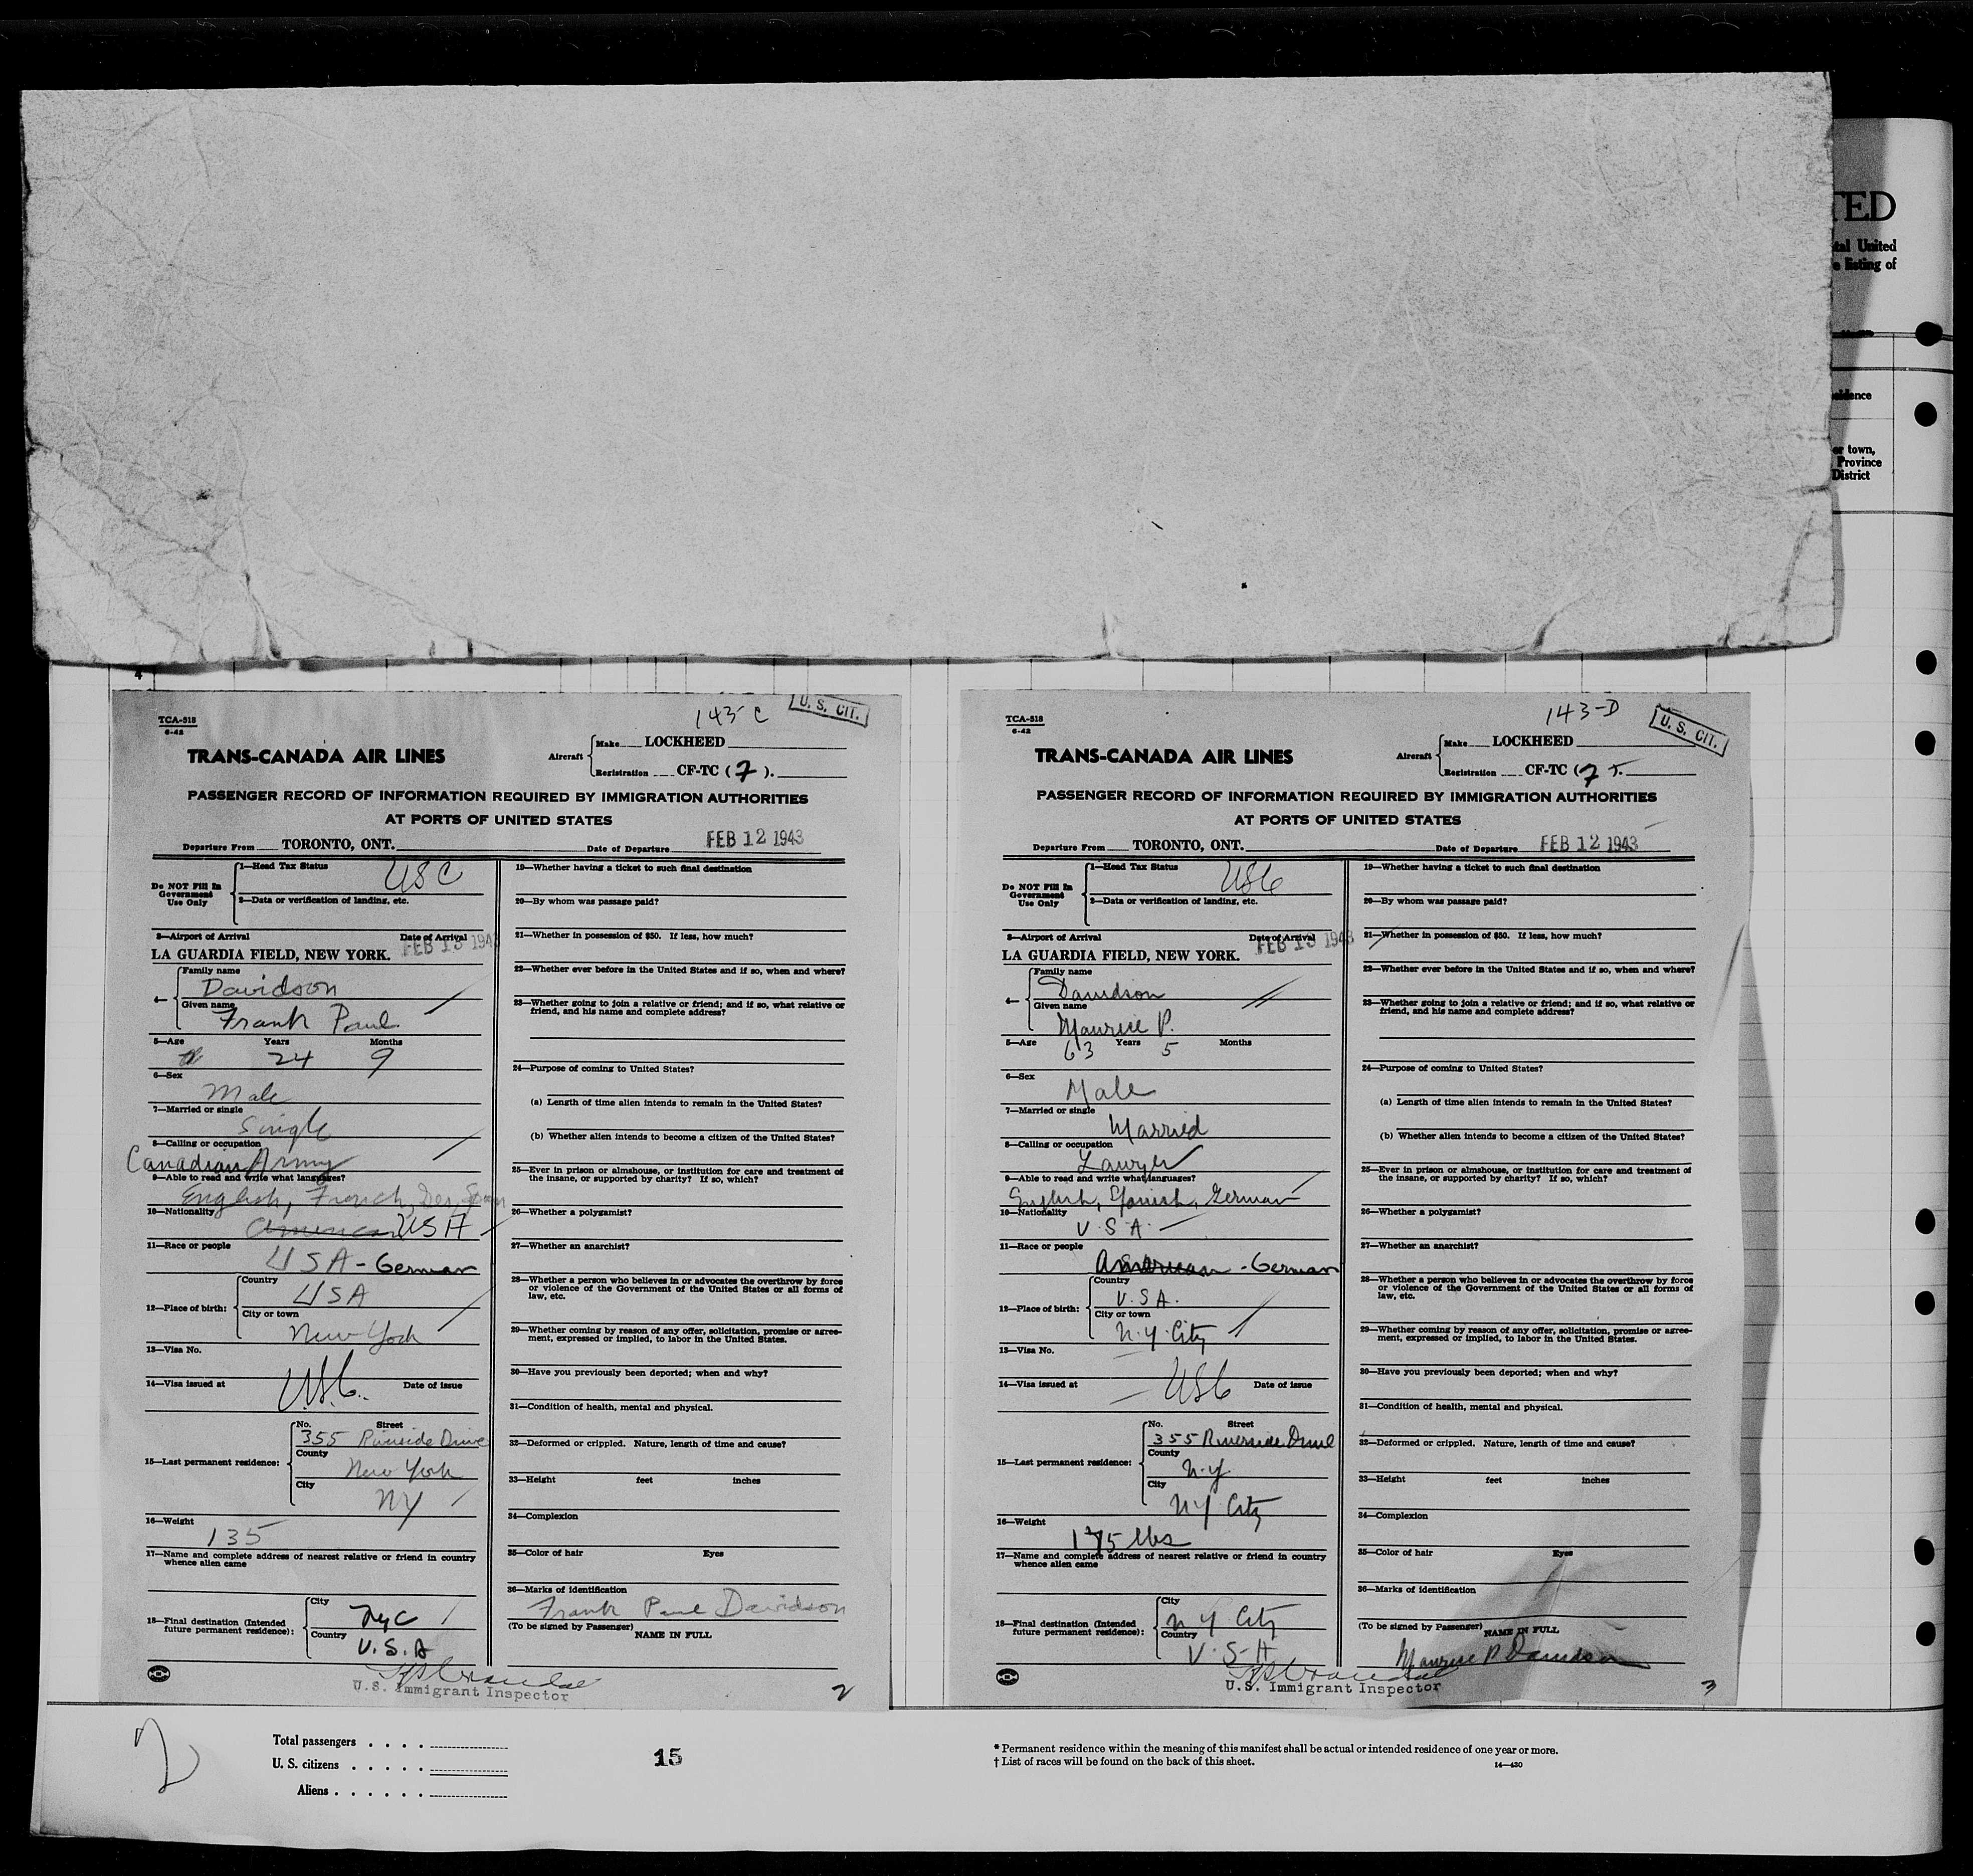 TED
tal United
a listing of
sidence
or town,
Province
District
4
TCA-518
6-42
143-C
U. S. CIT.
TRANS-CANADA AIR LINES
Aircraft
Make LOCKHEED
Registration CF-TC (7).
PASSENGER RECORD OF INFORMATION REQUIRED BY IMMIGRATION AUTHORITIES
AT PORTS OF UNITED STATES
Departure From TORONTO, ONT. Date of Departure FEB 12 1943
Do NOT Fill In
Government
Use Only
1—Head Tax Status USC
2—Data or verification of landing, etc.
3—Airport of Arrival Date of Arrival
LA GUARDIA FIELD, NEW YORK. FEB 13 1943
4—
Family name
Davidson
Given name
Frank Paul
5—Age Years Months
24 9
6—Sex
Male
7—Married or single
Single
8—Calling or occupation
Canadian Army
9—Able to read and write what languages?
English, French, Ger, Span
10—Nationality
American USA
11—Race or people
USA - German
12—Place of birth:
Country
USA
City or town
New York
13—Visa No.
14—Visa issued at U.S.C. Date of issue
15—Last permanent residence:
No. Street
355 Riverside Drive
County
New York
City
NY
16—Weight
135
17—Name and complete address of nearest relative or friend in country
whence alien came
18—Final destination (Intended
future permanent residence):
City
NYC
Country
U.S.A
U.S. Immigrant Inspector
19—Whether having a ticket to such final destination
20—By whom was passage paid?
21—Whether in possession of $50. If less, how much?
22—Whether ever before in the United States and if so, when and where?
23—Whether going to join a relative or friend; and if so, what relative or
friend, and his name and complete address?
24—Purpose of coming to United States?
(a) Length of time alien intends to remain in the United States?
(b) Whether alien intends to become a citizen of the United States?
25—Ever in prison or almshouse, or institution for care and treatment of
the insane, or supported by charity? If so, which?
26—Whether a polygamist?
27—Whether an anarchist?
28—Whether a person who believes in or advocates the overthrow by force
or violence of the Government of the United States or all forms of
law, etc.
29—Whether coming by reason of any offer, solicitation, promise or agree-
ment, expressed or implied, to labor in the United States.
30—Have you previously been deported; when and why?
31—Condition of health, mental and physical.
32—Deformed or crippled. Nature, length of time and cause?
33—Height feet inches
34—Complexion
35—Color of hair Eyes
36—Marks of identification
Frank Paul Davidson
(To be signed by Passenger) NAME IN FULL
2
TCA-518
6-42
143-D
U. S. CIT.
TRANS-CANADA AIR LINES
Aircraft
Make LOCKHEED
Registration CF-TC (7).
PASSENGER RECORD OF INFORMATION REQUIRED BY IMMIGRATION AUTHORITIES
AT PORTS OF UNITED STATES
Departure From TORONTO, ONT. Date of Departure FEB 12 1943
Do NOT Fill In
Government
Use Only
1—Head Tax Status USC
2—Data or verification of landing, etc.
3—Airport of Arrival Date of Arrival
LA GUARDIA FIELD, NEW YORK. FEB 13 1943
4—
Family name
Davidson
Given name
Maurice P.
5—Age Years Months
63 5
6—Sex
Male
7—Married or single
Married
8—Calling or occupation
Lawyer
9—Able to read and write what languages?
English, Spanish, German
10—Nationality
U.S.A.
11—Race or people
American - German
12—Place of birth:
Country
U.S.A.
City or town
N.Y. City
13—Visa No.
14—Visa issued at USC Date of issue
15—Last permanent residence:
No. Street
355 Riverside Drive
County
N.Y.
City
N.Y. City
16—Weight
175 lbs
17—Name and complete address of nearest relative or friend in country
whence alien came
18—Final destination (Intended
future permanent residence):
City
N Y City
Country
U.S.A
U.S. Immigrant Inspector
19—Whether having a ticket to such final destination
20—By whom was passage paid?
21—Whether in possession of $50. If less, how much?
22—Whether ever before in the United States and if so, when and where?
23—Whether going to join a relative or friend; and if so, what relative or
friend, and his name and complete address?
24—Purpose of coming to United States?
(a) Length of time alien intends to remain in the United States?
(b) Whether alien intends to become a citizen of the United States?
25—Ever in prison or almshouse, or institution for care and treatment of
the insane, or supported by charity? If so, which?
26—Whether a polygamist?
27—Whether an anarchist?
28—Whether a person who believes in or advocates the overthrow by force
or violence of the Government of the United States or all forms of
law, etc.
29—Whether coming by reason of any offer, solicitation, promise or agree-
ment, expressed or implied, to labor in the United States.
30—Have you previously been deported; when and why?
31—Condition of health, mental and physical.
32—Deformed or crippled. Nature, length of time and cause?
33—Height feet inches
34—Complexion
35—Color of hair Eyes
36—Marks of identification
(To be signed by Passenger) NAME IN FULL
Maurice P Davidson
3
2
Total passengers . . . .
U. S. citizens . . . . .
Aliens . . . . . .
15
* Permanent residence within the meaning of this manifest shall be actual or intended residence of one year or more.
† List of races will be found on the back of this sheet.
14—430